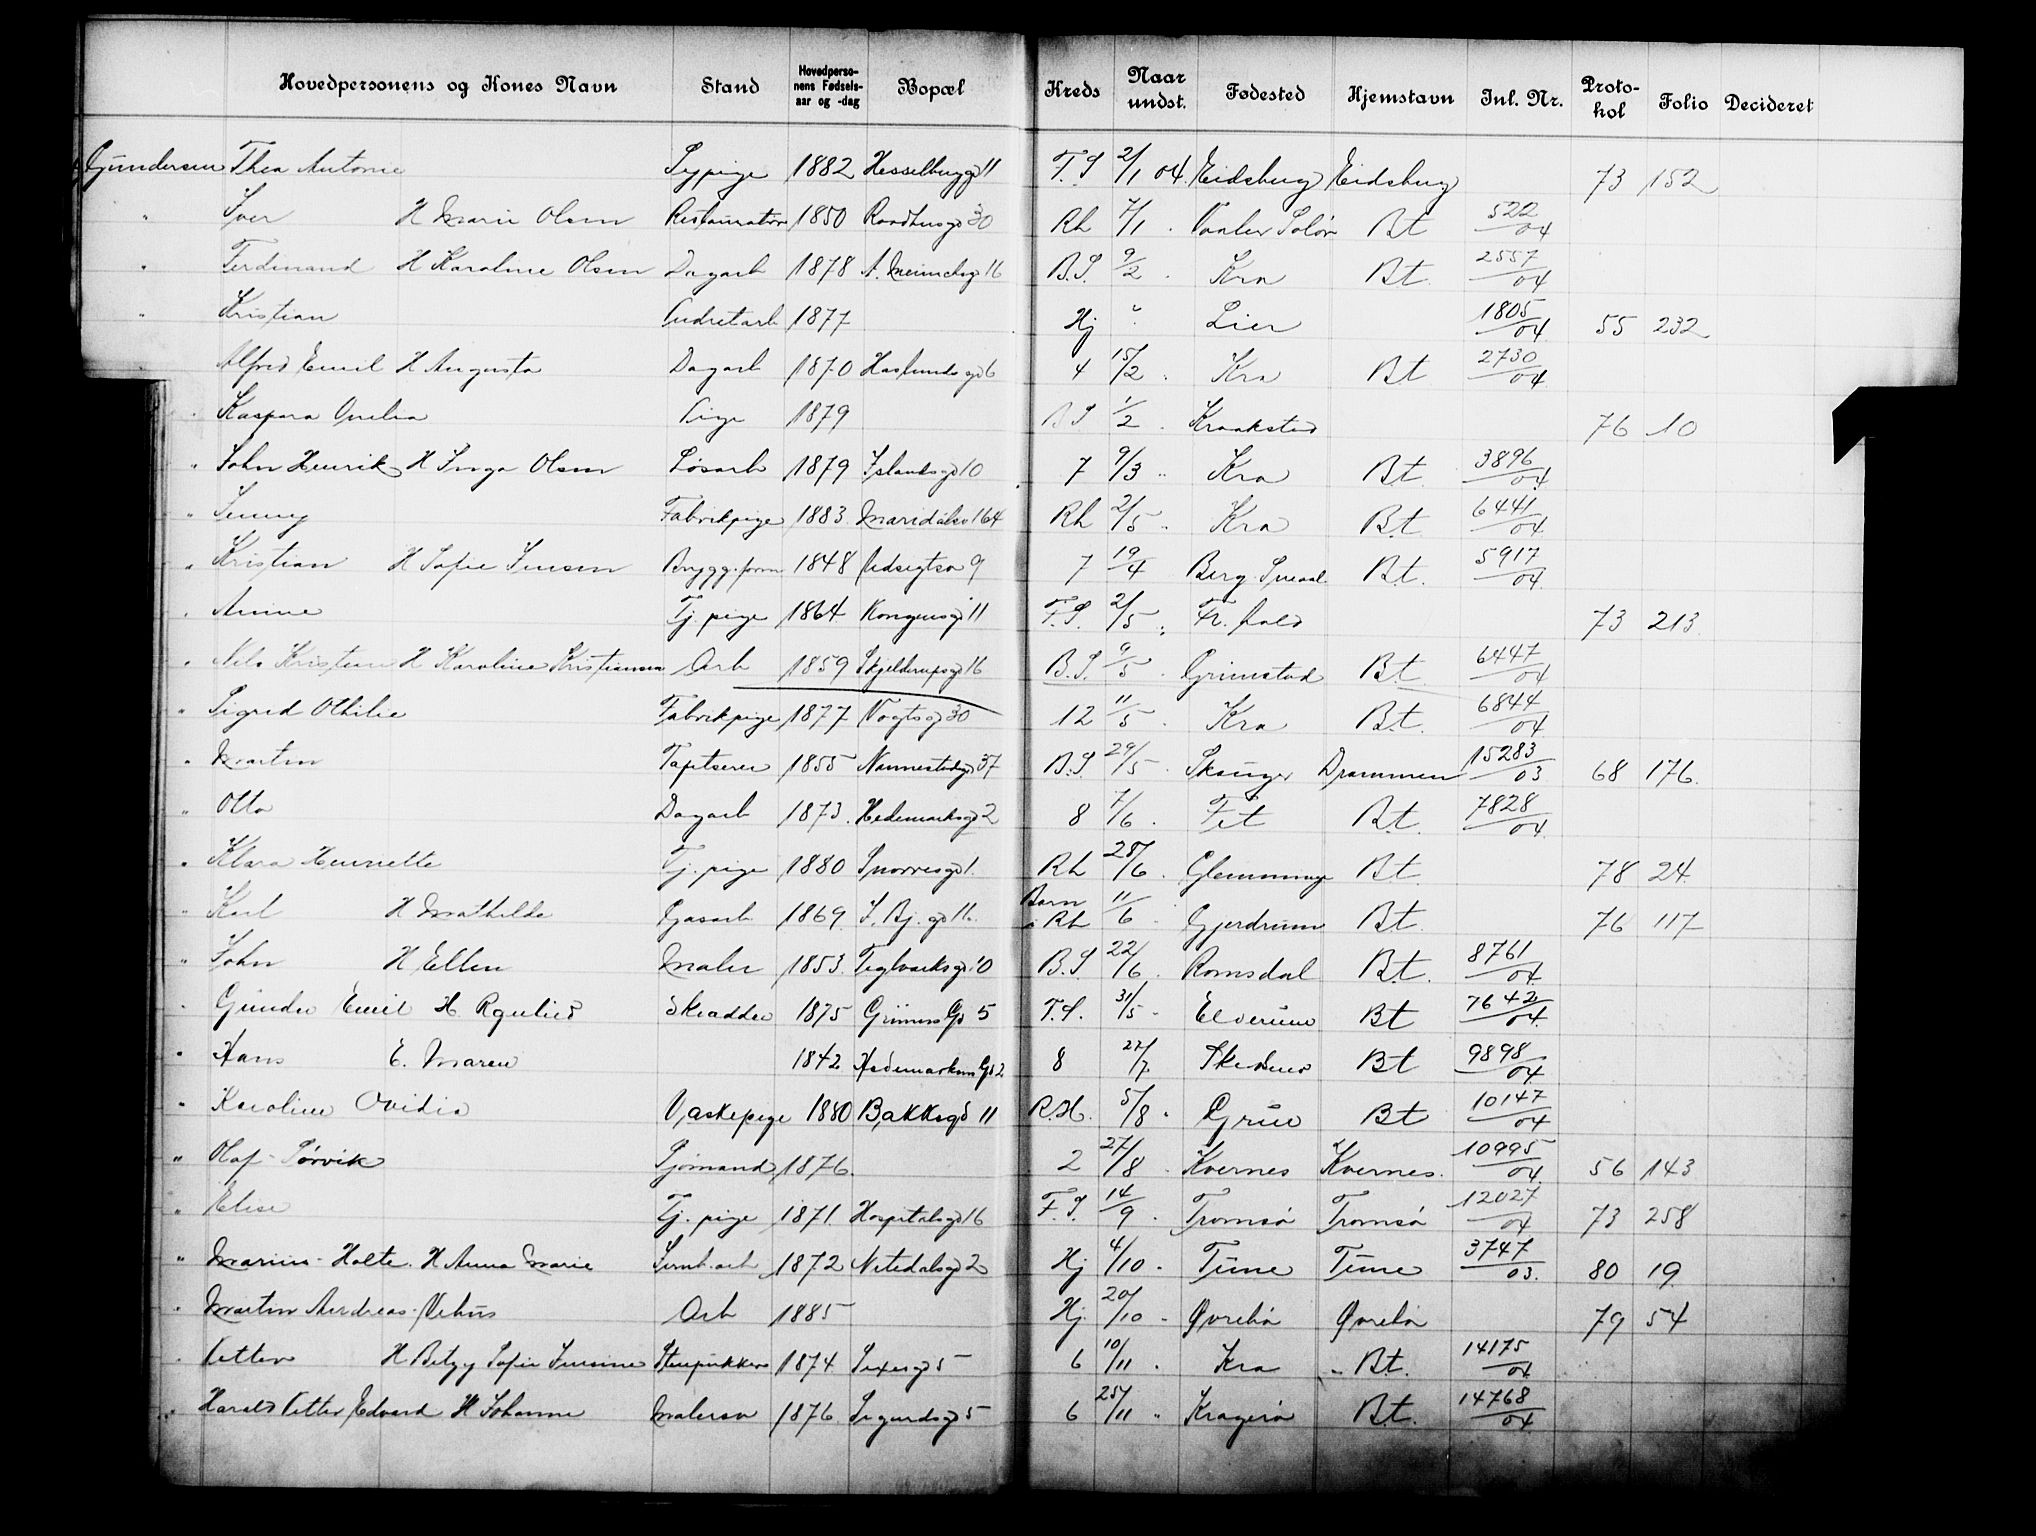 Hovedpersonens og Kones Navn Stand Hovedperso-nens Fødsels-aar og -dag Bopæl Kreds Naar undst. Fødested Hjemstavn Jnl. Nr. Proto-kol Folio Decideret
Gundersen Thea Antonie Sypige 1882 Hesselbergg 11 F.S 2/1 04. Eidsberg Eidsberg 73 152
" Iver H Marie Olsen Restauratør 1850 Raadhusgd 30 Rh 7/1 . Vaaler Solør Bt 522/04
" Ferdinand H Karoline Olsen Dagarb 1878 16 B.S. 9/2 . Kra Bt. 2557/04
" Kristian 1877 Hj " Lier 1805/04 55 232
Alfred Emil H Augusta Dagarb 1870 Haslunds gd 6 4 15/2 . Kra Bt 2730/04
" Kaspara Onelia Pige 1879 B S 1/2 . Kraakstad 76 10
" John Henrik H Inga Olsen Løsarb 1879 Islandsgd 10 7 9/3 " Kra Bt. 3896/04
" Jenny Fabrikpige 1883 Maridalsv 164 Rh 2/5 . Kra Bt 6441/04
" Kristian H Sofie Jensen Brygg.form 1848 Udsigtsv 9 7 19/4 Berg Smaal. Bt. 5917/04
" Anne Tj. pige 1864 Kongensgd 11 F.S. 2/5 " Fr.hald 73 213
" Nils Kristian H Karoline Kristiansen Arb 1859 Skjelderupsgd 16 B.S. 9/5 . Grimstad Bt 6447/04
" Sigrid Othilie Fabrikpige 1877 Vogtsgd 30 12 11/5 . Kra Bt. 6844/04
" Martin Tapetserer 1855 Nannestadgd 37 B.S. 29/5 . Skouger Drammen 15283/03 68 176.
" Otto Dagarb 1873. Hedemarksgd 2 8 7/6 . Fet Bt. 7828/04
" Klara Henriette Tj. pige 1880 Snorresgd 1. Rh 28/6 . Glemminge Bt. 78 24.
" Karl H Mathilde Gasarb 1869 Barn i Rh 11/6 . Gjerdrum Bt. 76 117
" John H Ellen Maler 1853. Teglverksgd 10 B.S 22/6 . Romsdal Bt. 8761/04
" Gunder Emil H Ragnhild Skrædder 1875 Grimers Gd 5 F.S. 31/5 - Elverum Bt 7642/04
" Hans E. Maren 1842 Hedemarkens Gd 2 8 27/7 Skedsmo Bt 9898/04
" Karoline Ovidia Vaskepige 1880 Bakkegd 11 R.H. 5/8 . Grue Bt 10147/04
" Olaf - Sørvik Sjømand 1876. 2 27/8 . Kvernes Kvernes. 10995/04 56 143
" Elise Tj. pige 1871. Hospitalsgd 16 F.S. 14/9 . Tromsø Tromsø 12027/04 73 258
" Marius - Holte. H Anna Marie 1872 Nitedalsgd 2 Hj 4/10 . Tune Tune 3747/03. 80 19
" Martin Andreas - Vehus Arb 1885 Hj. 20/10 . Øvrebø Øvrebø 79 54
" Petter H Betzy Sofie Jensine Stenpukker 1874 Sexesgd 5 6 10/11 . Kra " Bt. 14175/04
" Harald Petter Edvard H Johanne Malersv 1876 Sigurdsgd 5 6 25/11 " Kragerø Bt. 14768/04